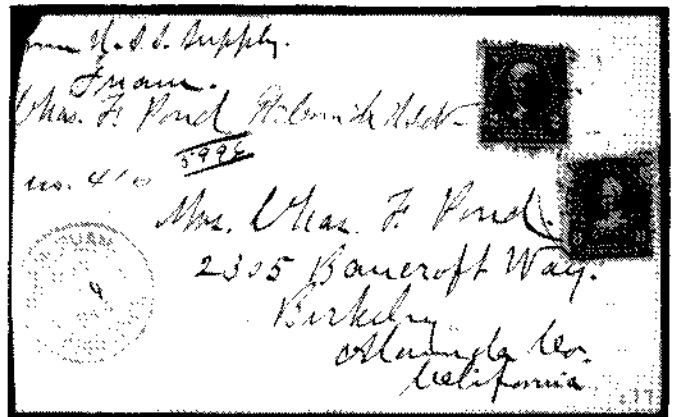 from U.S.S. Supply.
Guam.
Chas. F. Pond Lt. Comdr. U.S.N.
5996
no. 4
GUAM
Mrs. Chas. F. Pond.
2305 Bancroft Way.
Berkeley
Alameda Co.
California